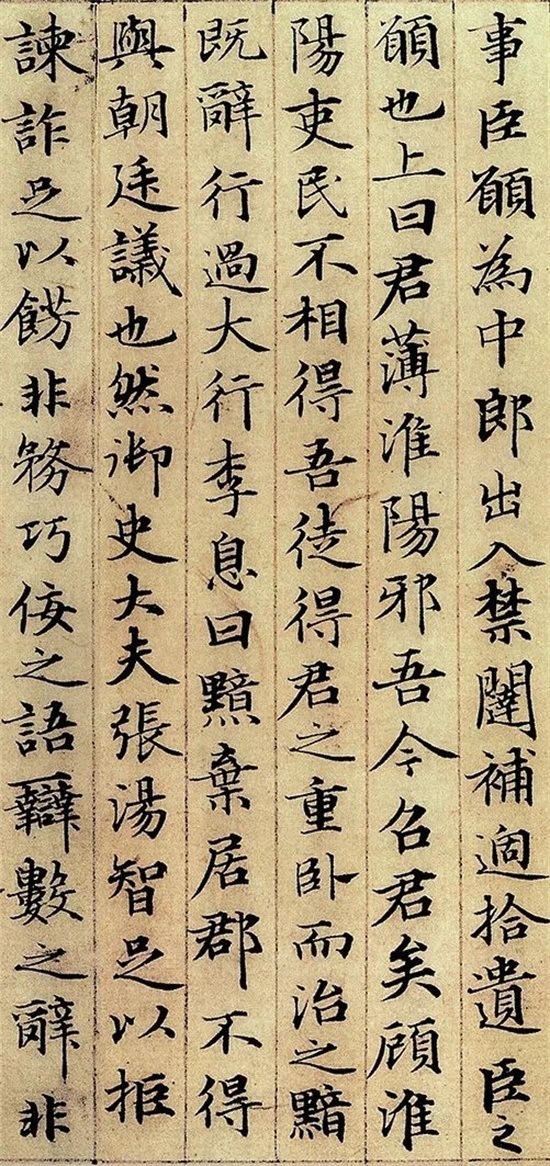 事臣願為中郎出入禁闥補過拾遺臣之
願也上曰君薄淮陽邪吾今召君矣顧淮
陽吏民不相得吾徒得君之重臥而治之黯
既辭行過大行李息曰黯棄居郡不得
與朝廷議也然御史大夫張湯智足以拒
諫詐足以餝非務巧佞之語辯數之辭非